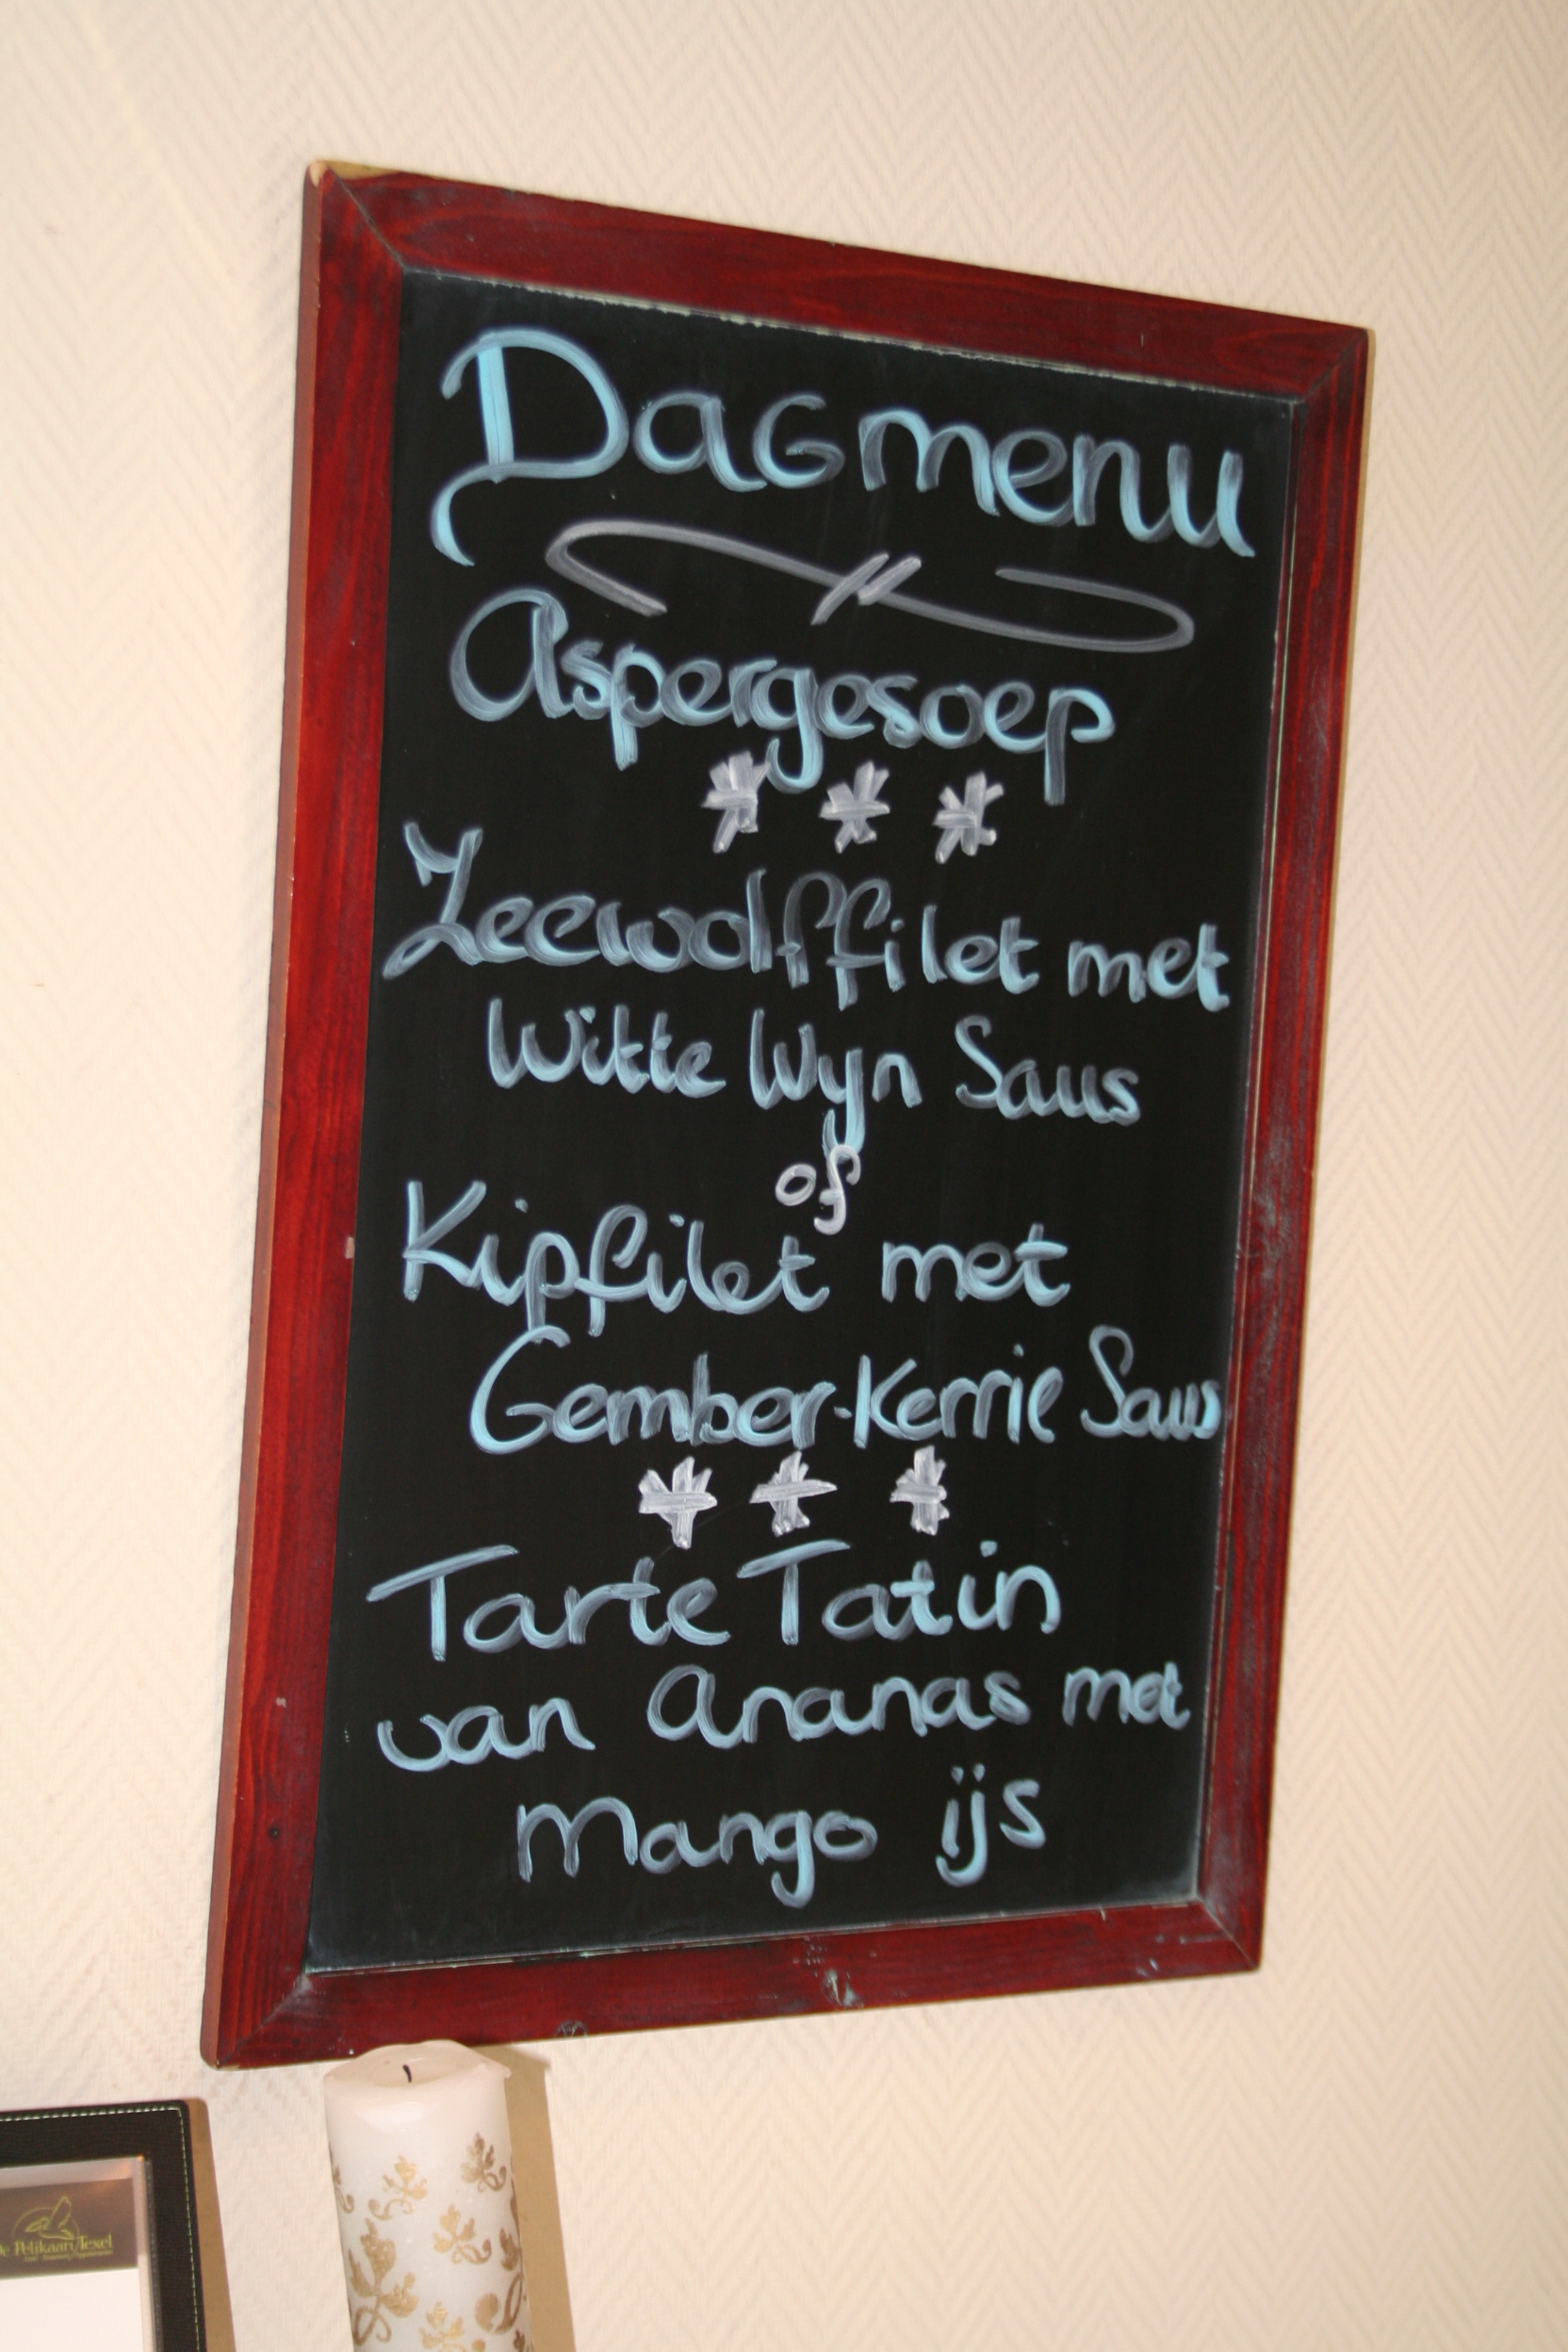 Dagmenu
Aspergesoep
* * *
Zeewolffilet met
Witte Wyn Saus
of
Kipfilet met
Gember-Kerrie Saus
* * *
Tarte Tatin
van Ananas met
Mango ijs
De Pelikaan Texel